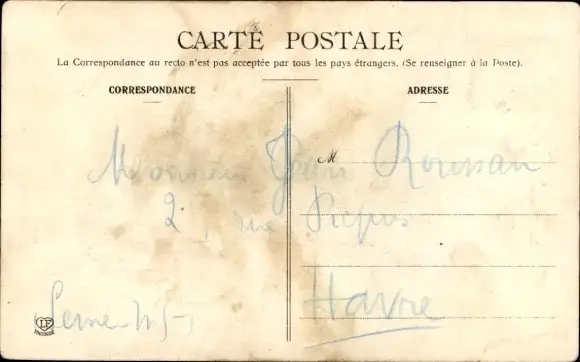 CARTE POSTALE
La Correspondance au recto n'est pas acceptée par tous les pays étrangers. (Se renseigner à la Poste).
CORRESPONDANCE
ADRESSE
M
Monsieur Jean Roussan
2, rue Picpus
Havre
Seine-Inf
LF